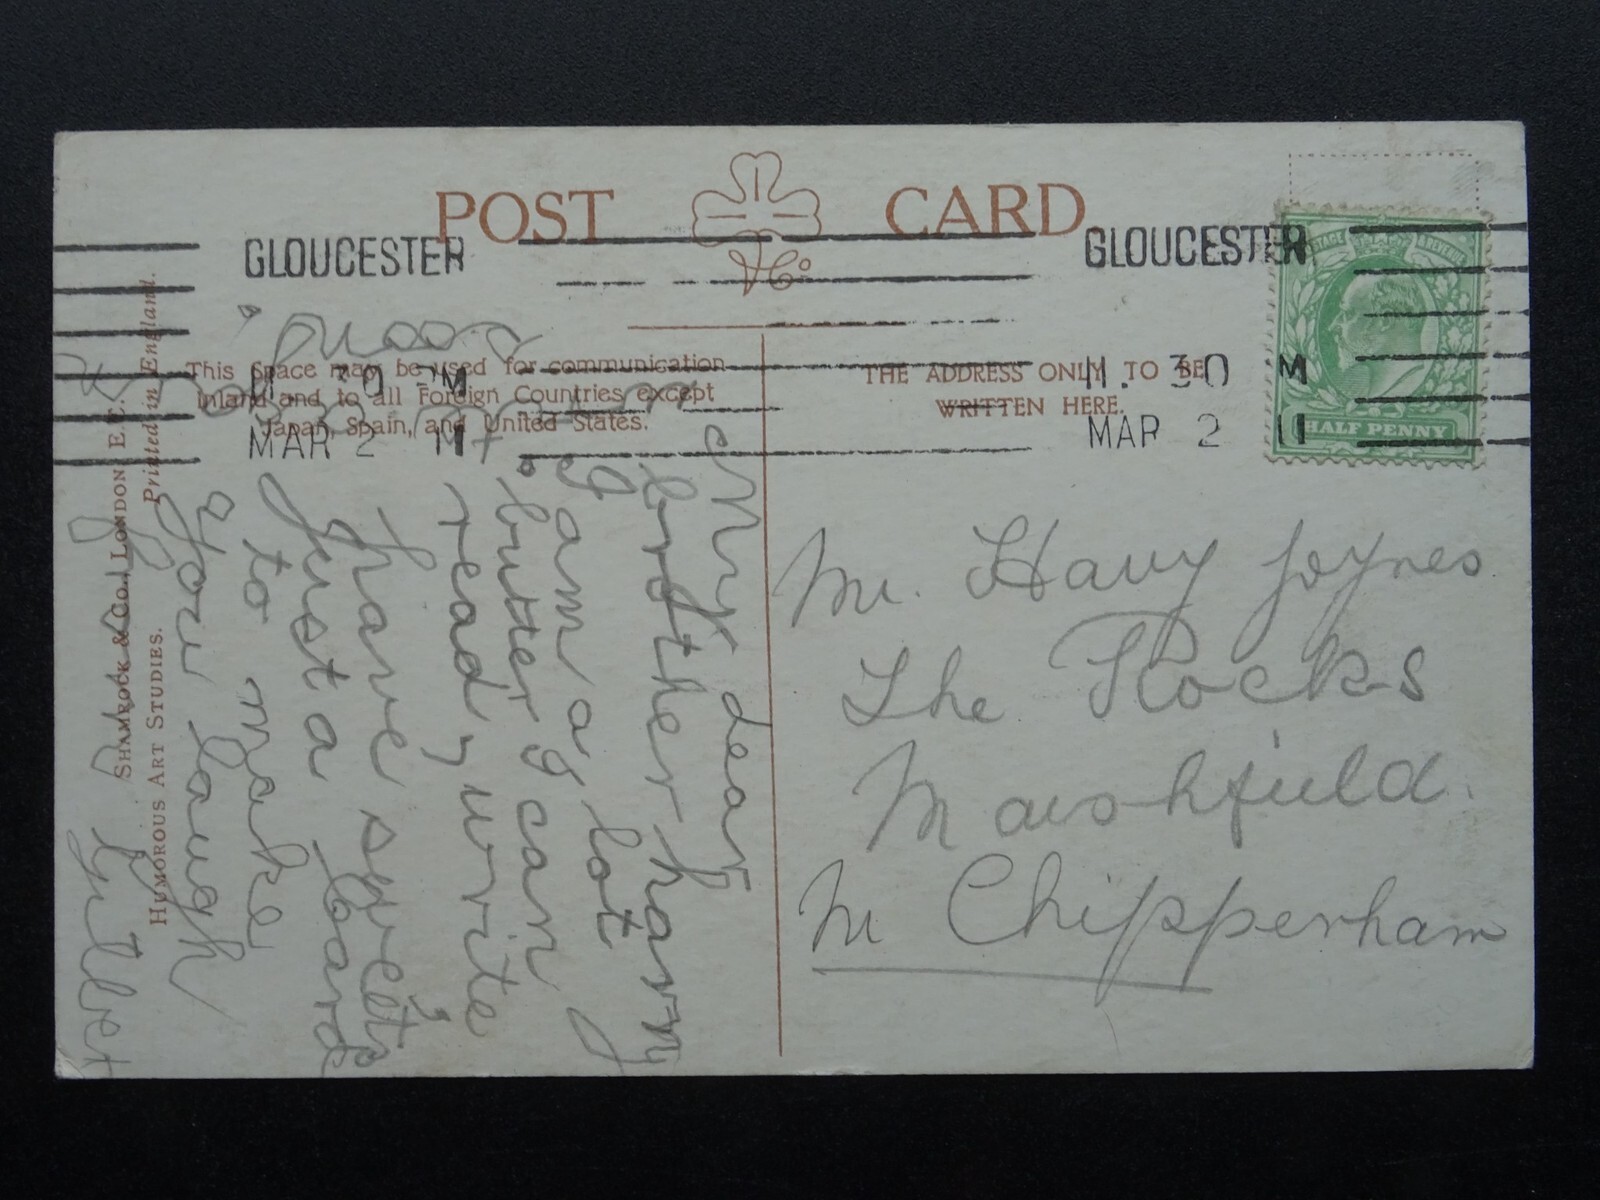 POST CARD
& Co
GLOUCESTER
11. 30 M
MAR 2 11
GLOUCESTER
11. 30 M
MAR 2 11
POSTAGE & REVENUE
HALF PENNY
This Space may be used for communication
Inland and to all Foreign Countries except
Japan, Spain, and United States.
THE ADDRESS ONLY TO BE
WRITTEN HERE.
SHAMROCK & CO. LONDON E.C. Printed in England.
HUMOROUS ART STUDIES.
My dear
brother harry
I am a lot
better I can
read, write
have sweets
Just a card
to make
you laugh
Mr. Harry Joynes
The Rocks
Marshfield.
Nr Chippenham